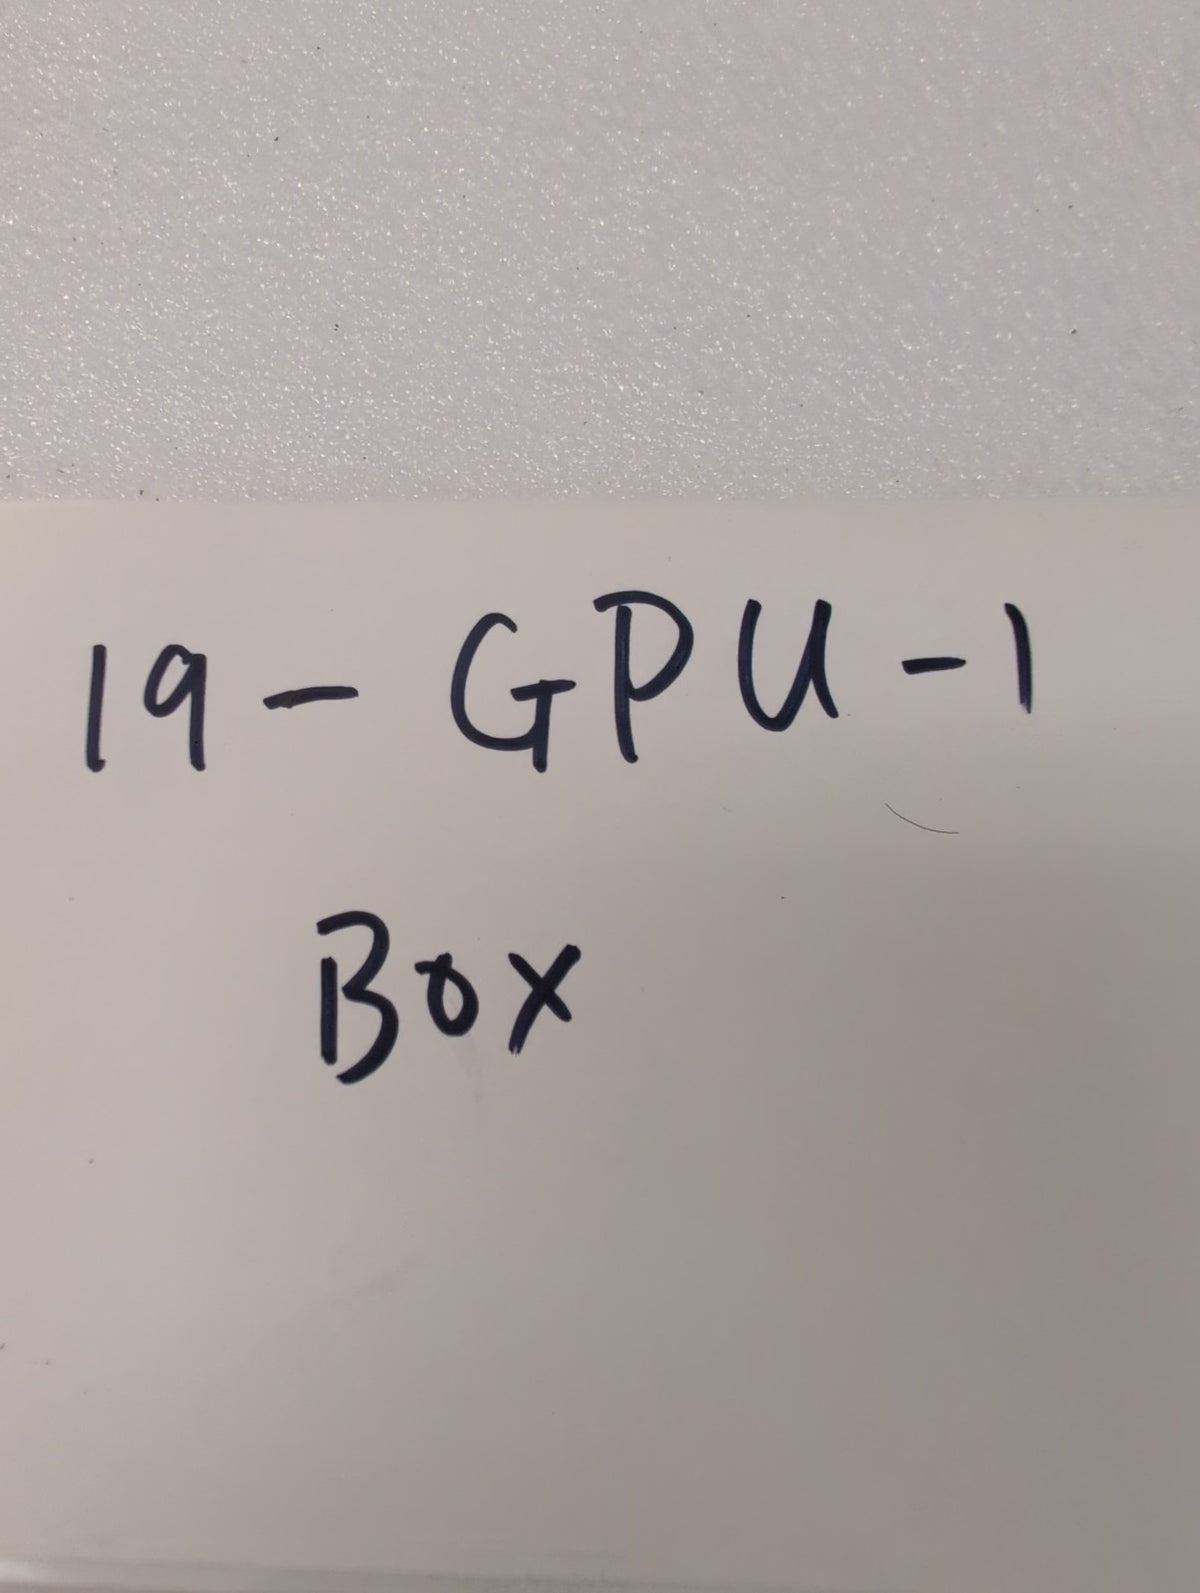 19-GPU-1
Box